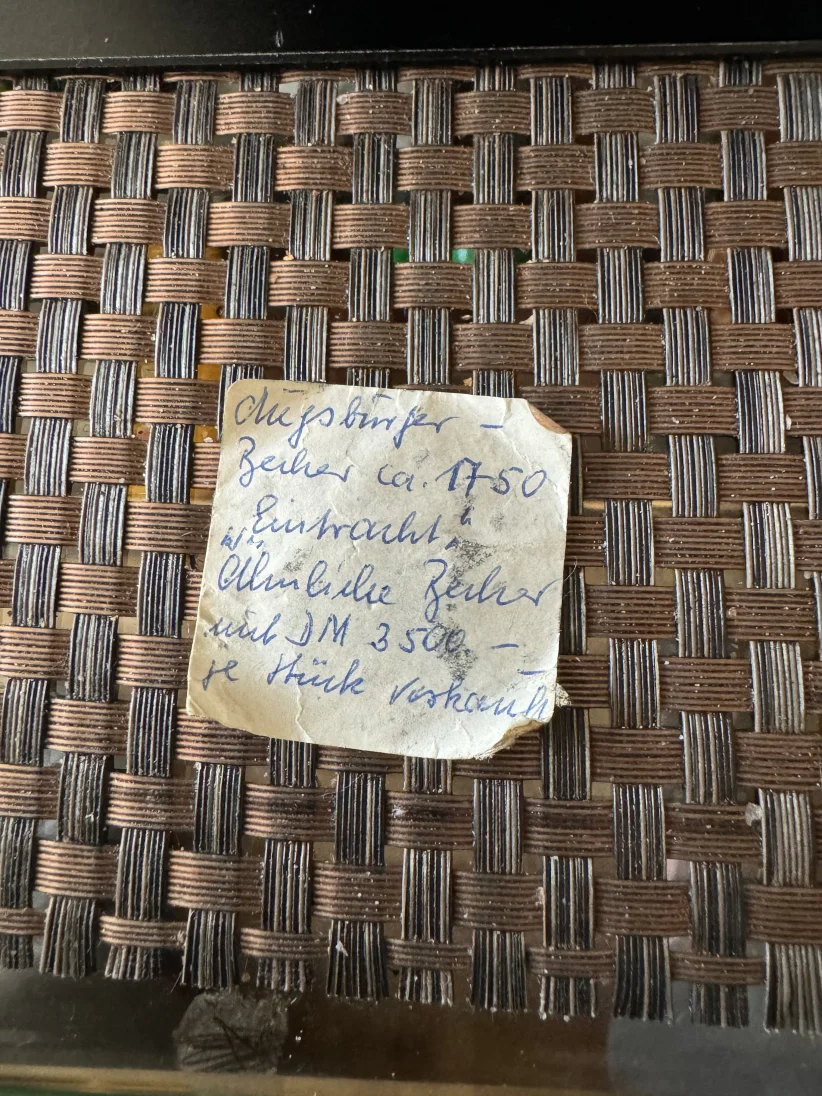 Augsburger -
Becher ca. 1750
„Eintracht"
Ähnliche Becher
mit DM 3500.-
je Stück verkauft